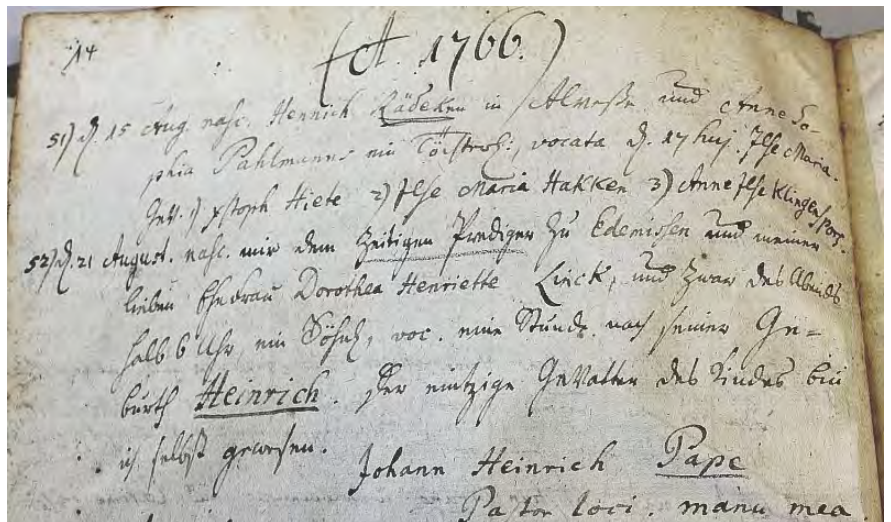 14
(A. 1766.)
51) d. 15 Aug. nasc. Hennich Rädeken in Alvesse und Anne So-
phia Pahlmanns ein Töchterch:, vocata d. 17 huj. Ilse Maria.
Gev. 1) xstoph Hiete 2) Ilse Maria Hakken 3) Anne Ilse Klingenspors.
52) d. 21 August. nasc. mir dem zeitigen Prediger zu Edemissen und meiner
lieben Ehefrau Dorothea Henriette Linck, und zwar des Abends
halb 6 Uhr, ein Söhnch, voc. eine Stunde nach seiner Ge=
burth Heinrich. Der eintzige Gevatter des Kindes bin
ich selbst gewesen.
Johann Heinrich Pape
Pastor loci. manu mea.